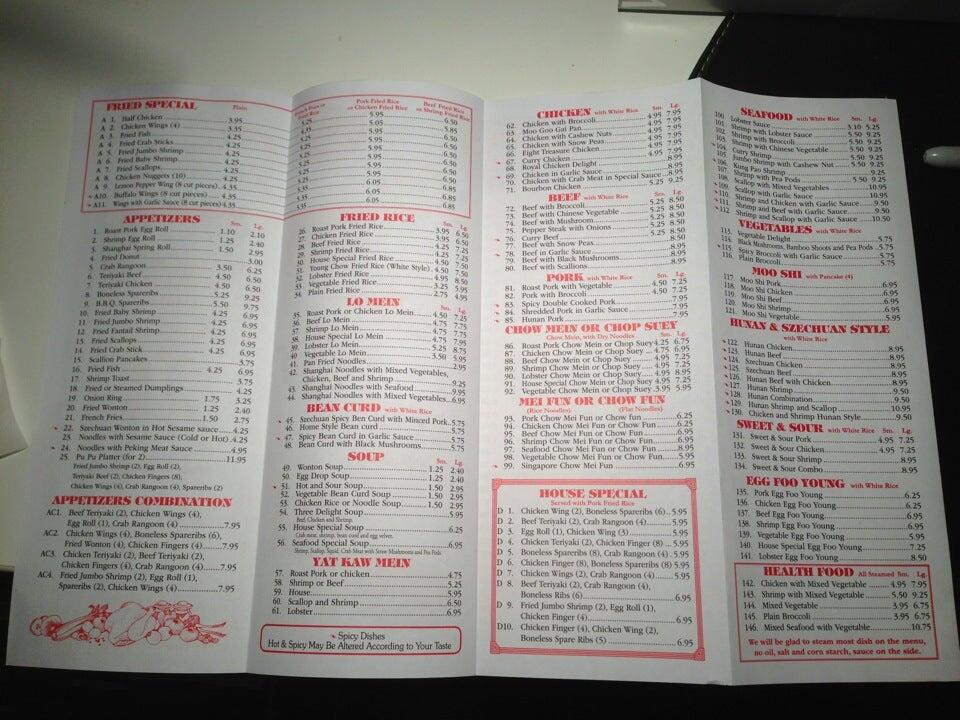 FRIED SPECIAL
Plain
Pork Fried Rice
or Chicken Fried Rice
Beef Fried Rice
or Shrimp Fried Rice
A 1. Half Chicken 3.95 5.95 6.50
A 2. Chicken Wings (4) 3.35 5.25 5.85
A 3. Fried Fish 4.25 5.95 6.50
A 4. Fried Crab Sticks 4.25 5.95 6.50
A 5. Fried Jumbo Shrimp 4.25 5.95 6.50
A 6. Fried Baby Shrimp 4.25 5.95 6.50
A 7. Fried Scallops 4.25 5.95 6.50
A 8. Chicken Nuggets (10) 4.25 5.95 6.50
A 9. Lemon Pepper Wing (8 cut pieces) 4.35 6.05 6.85
A10. Buffalo Wings (8 cut pieces) 4.35 6.05 6.85
A11. Wings with Garlic Sauce (8 cut pieces) 4.35 6.05 6.85
APPETIZERS
Sm. Lg.
1. Roast Pork Egg Roll 1.10 2.10
2. Shrimp Egg Roll 1.25 2.40
3. Shanghai Spring Roll 1.50 2.95
4. Fried Donut 3.00
5. Crab Rangoon 3.50 6.25
6. Teriyaki Beef 4.50 6.50
7. Teriyaki Chicken 4.50 6.50
8. Boneless Spareribs 5.25 9.25
9. B.B.Q. Spareribs 5.50 9.75
10. Fried Baby Shrimp 4.25 6.95
11. Fried Jumbo Shrimp 4.25 6.95
12. Fried Fantail Shrimp 4.25 6.95
13. Fried Scallops 4.25 6.95
14. Fried Crab Stick 4.25 6.95
15. Scallion Pancakes 3.75
16. Fried Fish 4.25 6.95
17. Shrimp Toast 3.75
18. Fried or Steamed Dumplings 4.25
19. Onion Ring 1.75 3.25
20. Fried Wonton 1.25 2.40
21. French Fries 1.50 2.75
22. Szechuan Wonton in Hot Sesame sauce 4.25
23. Noodles with Sesame Sauce (Cold or Hot) 4.25
24. Noodles with Peking Meat Sauce 4.95
25. Pu Pu Platter (for 2) 11.95
Fried Jumbo Shrimp (2), Egg Roll (2),
Teriyaki Beef (2), Chicken Fingers (8),
Chicken Wings (4), Crab Rangoon (4), Spareribs (2)
APPETIZERS COMBINATION
AC1. Beef Teriyaki (2), Chicken Wings (4),
Egg Roll (1), Crab Rangoon (4) 7.95
AC2. Chicken Wings (4), Boneless Spareribs (6),
Fried Wonton (4), Chicken Fingers (4) 7.95
AC3. Chicken Teriyaki (2), Beef Teriyaki (2),
Chicken Fingers (4), Crab Rangoon (4) 7.95
AC4. Fried Jumbo Shrimp (2), Egg Roll (1),
Spareribs (2), Chicken Wings (4) 7.95
FRIED RICE
Sm. Lg.
26. Roast Pork Fried Rice 3.95 6.50
27. Chicken Fried Rice 3.95 6.50
28. Beef Fried Rice 4.25 7.25
29. Shrimp Fried Rice 4.25 7.25
30. House Special Fried Rice 4.50 7.50
31. Young Chow Fried Rice (White Style) 4.50 7.50
32. Lobster Fried Rice 4.95 8.50
33. Vegetable Fried Rice 3.25 5.95
34. Plain Fried Rice 2.75 4.95
LO MEIN
Sm. Lg.
35. Roast Pork or Chicken Lo Mein 4.50 7.25
36. Beef Lo Mein 4.75 7.75
37. Shrimp Lo Mein 4.75 7.75
38. House Special Lo Mein 4.75 7.75
39. Lobster Lo Mein 5.25 8.75
40. Vegetable Lo Mein 3.50 5.95
41. Pan Fried Noodles
42. Shanghai Noodles with Mixed Vegetables,
Chicken, Beef and Shrimp 9.25
43. Shanghai Noodles with Seafood 9.50
44. Shanghai Noodles with Mixed Vegetables 6.95
BEAN CURD with White Rice
45. Szechuan Spicy Ben Curd with Minced Pork 5.75
46. Home Style Bean curd 5.75
47. Spicy Bean Curd in Garlic Sauce 5.75
48. Bean Curd with Black Mushrooms 5.75
SOUP
Sm. Lg.
49. Wonton Soup 1.25 2.40
50. Egg Drop Soup 1.25 2.40
51. Hot and Sour Soup 1.50 2.95
52. Vegetable Bean Curd Soup 1.50 2.95
53. Chicken Rice or Noodle Soup 1.50 2.95
54. Three Delight Soup 5.95
Beef, Chicken and Shrimp.
55. House Special Soup 6.25
Crab meat, shrimp, bean curd and egg velvet.
56. Seafood Special Soup 6.95
Shrimp, Scallop, Squid, Crab Meat with Straw Mushrooms and Pea Pods
YAT KAW MEIN
57. Roast Pork or chicken 4.75
58. Shrimp or Beef 5.25
59. House 5.95
60. Scallop and Shrimp 6.50
61. Lobster 6.95
Spicy Dishes
Hot & Spicy May Be Altered According to Your Taste
CHICKEN with White Rice
Sm. Lg.
62. Chicken with Broccoli 4.95 7.95
63. Moo Goo Gai Pan 4.95 7.95
64. Chicken with Cashew Nuts 4.95 7.95
65. Chicken with Snow Peas 4.95 7.95
66. Eight Treasure Chicken 4.95 7.95
67. Curry Chicken
68. Royal Chicken Delight 8.95
69. Chicken in Garlic Sauce
70. Chicken with Crab Meat in Special Sauce 8.95
71. Bourbon Chicken 5.25 9.25
BEEF with White Rice
Sm. Lg.
72. Beef with Broccoli 5.25 8.50
73. Beef with Chinese Vegetable 5.25 8.50
74. Beef with Mushroom 5.25 8.50
75. Pepper Steak with Onions 5.25 8.50
76. Curry Beef 5.25 8.50
77. Beef with Snow Peas 8.95
78. Beef in Garlic Sauce 8.95
79. Beef with Black Mushrooms 8.95
80. Beef with Scallions 8.95
PORK with White Rice
Sm. Lg.
81. Roast Pork with Vegetable 4.50 7.25
82. Pork with Broccoli 4.50 7.25
83. Spicy Double Cooked Pork 7.95
84. Shredded Pork in Garlic Sauce 7.95
85. Hunan Pork 7.95
CHOW MEIN OR CHOP SUEY
Chow Mein, with Dry Noodles Sm. Lg.
86. Roast Pork Chow Mein or Chop Suey 4.25 6.75
87. Chicken Chow Mein or Chop Suey 4.75 6.95
88. Beef Chow Mein or Chop Suey 4.95 7.25
89. Shrimp Chow Mein or Chop Suey 4.95 7.25
90. Lobster Chow Mein or Chop Suey 5.95 8.95
91. House Special Chow Mein or Chop Suey 4.95 7.25
92. Vegetable Chow Mein or Chop Suey 3.95 5.95
MEI FUN OR CHOW FUN
(Rice Noodles) (Flat Noodles)
93. Pork Chow Mei Fun or Chow Fun 6.25
94. Chicken Chow Mei Fun or Chow Fun 6.25
95. Beef Chow Mei Fun or Chow Fun 6.95
96. Shrimp Chow Mei Fun or Chow Fun 6.95
97. Seafood Chow Mei Fun or Chow Fun 8.95
98. Vegetable Chow Mei Fun or Chow Fun 5.95
99. Singapore Chow Mei Fun 6.95
HOUSE SPECIAL
Served with Pork Fried Rice
D 1. Chicken Wing (2), Boneless Spareribs (6) 5.95
D 2. Beef Teriyaki (2), Crab Rangoon (4) 5.95
D 3. Egg Roll (1), Chicken Wing (3) 5.95
D 4. Chicken Teriyaki (2), Chicken Finger (8) 5.95
D 5. Boneless Spareribs (8), Crab Rangoon (4) 5.95
D 6. Chicken Finger (8), Boneless Spareribs (8) 5.95
D 7. Chicken Wings (2), Crab Rangoon (4) 5.95
D 8. Beef Teriyaki (2), Crab Rangoon (4),
Boneless Ribs (6) 6.95
D 9. Fried Jumbo Shrimp (2), Egg Roll (1),
Chicken Finger (4) 6.95
D10. Chicken Finger (4), Chicken Wing (2),
Boneless Spare Ribs (5) 6.95
SEAFOOD with White Rice
Sm. Lg.
100. Lobster Sauce 3.10 5.25
101. Shrimp with Lobster Sauce 5.50 9.25
102. Shrimp with Broccoli 5.50 9.25
103. Shrimp with Chinese Vegetable 5.50 9.25
104. Curry Shrimp 5.50 9.25
105. Jumbo Shrimp with Cashew Nut 5.50 9.25
106. Kung Pao Shrimp 9.25
107. Shrimp with Pea Pods 5.50 9.25
108. Scallop with Mixed Vegetables 10.95
109. Scallop with Garlic Sauce 10.95
110. Shrimp and Chicken with Garlic Sauce 9.50
111. Shrimp and Beef with Garlic Sauce 9.50
112. Shrimp and Scallop with Garlic Sauce 10.50
VEGETABLES with White Rice
113. Vegetable Delight 5.75
114. Black Mushrooms, Bamboo Shoots and Pea Pods 5.95
115. Spicy Broccoli with Garlic Sauce 5.75
116. Plain Broccoli 5.75
MOO SHI with Pancake (4)
117. Moo Shi Pork 6.95
118. Moo Shi Chicken 6.95
119. Moo Shi Beef 6.95
120. Moo Shi Shrimp 6.95
121. Moo Shi Vegetable 5.95
HUNAN & SZECHUAN STYLE
with White Rice
122. Hunan Chicken 8.95
123. Hunan Beef 8.95
124. Szechuan Chicken 8.95
125. Szechuan Beef 8.95
126. Hunan Beef with Chicken 8.95
127. Hunan Shrimp 8.95
128. Hunan Combination 9.50
129. Hunan Shrimp and Scallop 10.95
130. Chicken and Shrimp Hunan Style 9.50
SWEET & SOUR with White Rice
Sm. Lg.
131. Sweet & Sour Pork 4.95 7.25
132. Sweet & Sour Chicken 4.95 7.25
133. Sweet & Sour Shrimp 8.95
134. Sweet & Sour Combo 8.95
EGG FOO YOUNG with White Rice
135. Pork Egg Foo Young 6.25
136. Chicken Egg Foo Young 6.25
137. Beef Egg Foo Young 6.95
138. Shrimp Egg Foo Young 6.95
139. Vegetable Egg Foo Young 5.95
140. House Special Egg Foo Young 7.25
141. Lobster Egg Foo Young 8.50
HEALTH FOOD All Steamed Sm. Lg.
142. Chicken with Mixed Vegetable 4.95 7.95
143. Shrimp with Mixed Vegetable 5.50 9.25
144. Mixed Vegetable 3.95 6.75
145. Plain Broccoli 3.95 6.75
146. Mixed Seafood with Vegetable 10.75
We will be glad to steam most dish on the menu,
no oil, salt and corn starch, sauce on the side.